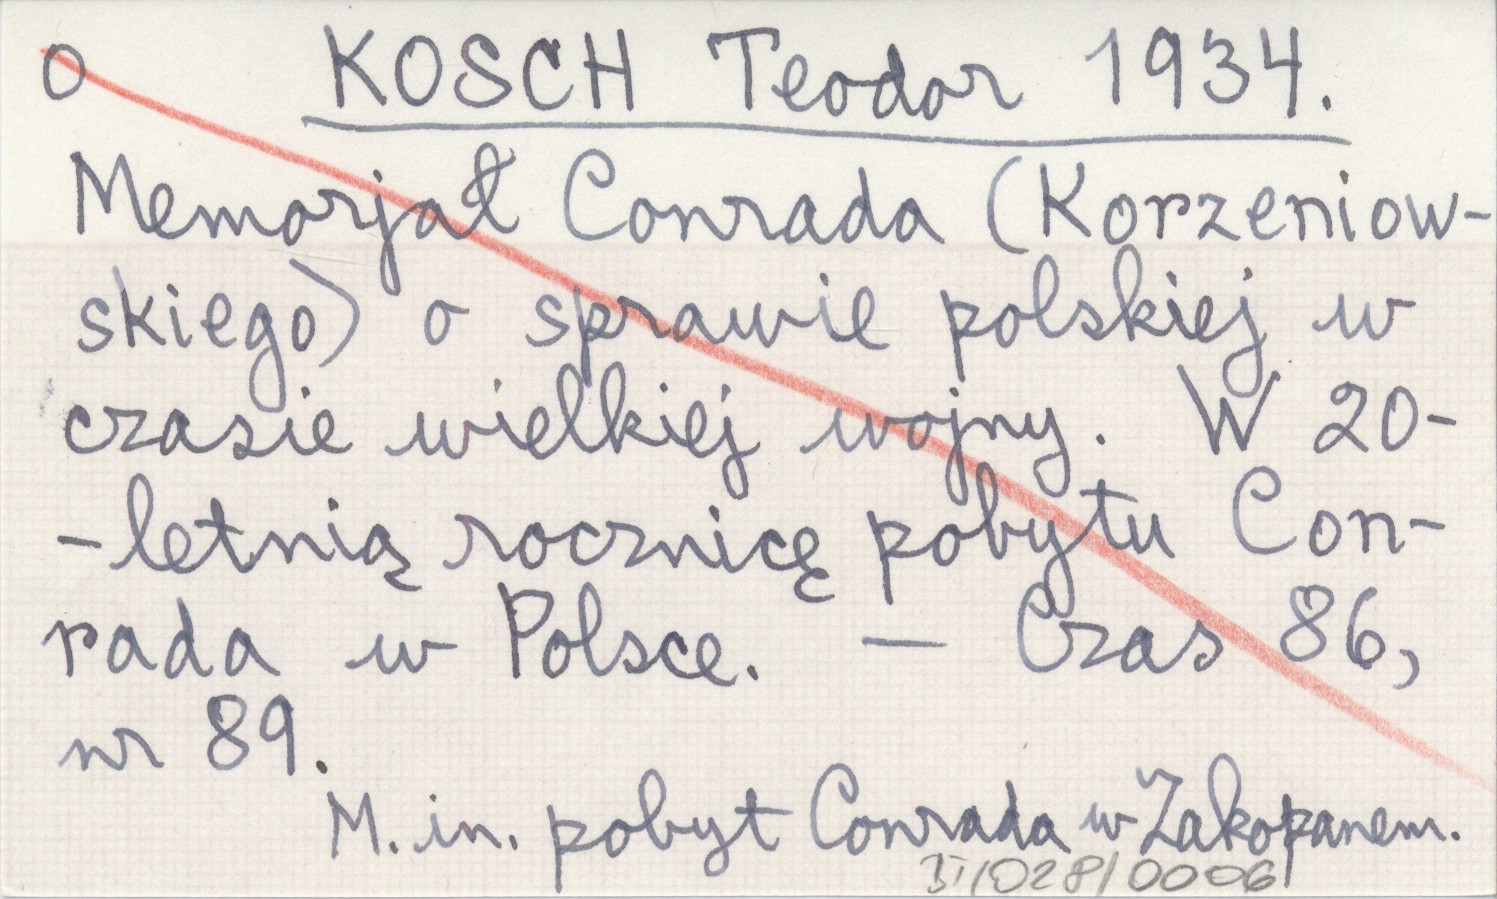 O KOSCH Teodor 1934.
Memorjał Conrada (Korzeniow-
skiego) o sprawie polskiej w
czasie wielkiej wojny. W 20-
-letnią rocznicę pobytu Con-
rada w Polsce. — Czas 86,
nr 89.
M. in. pobyt Conrada w Zakopanem.
BI/028/0006